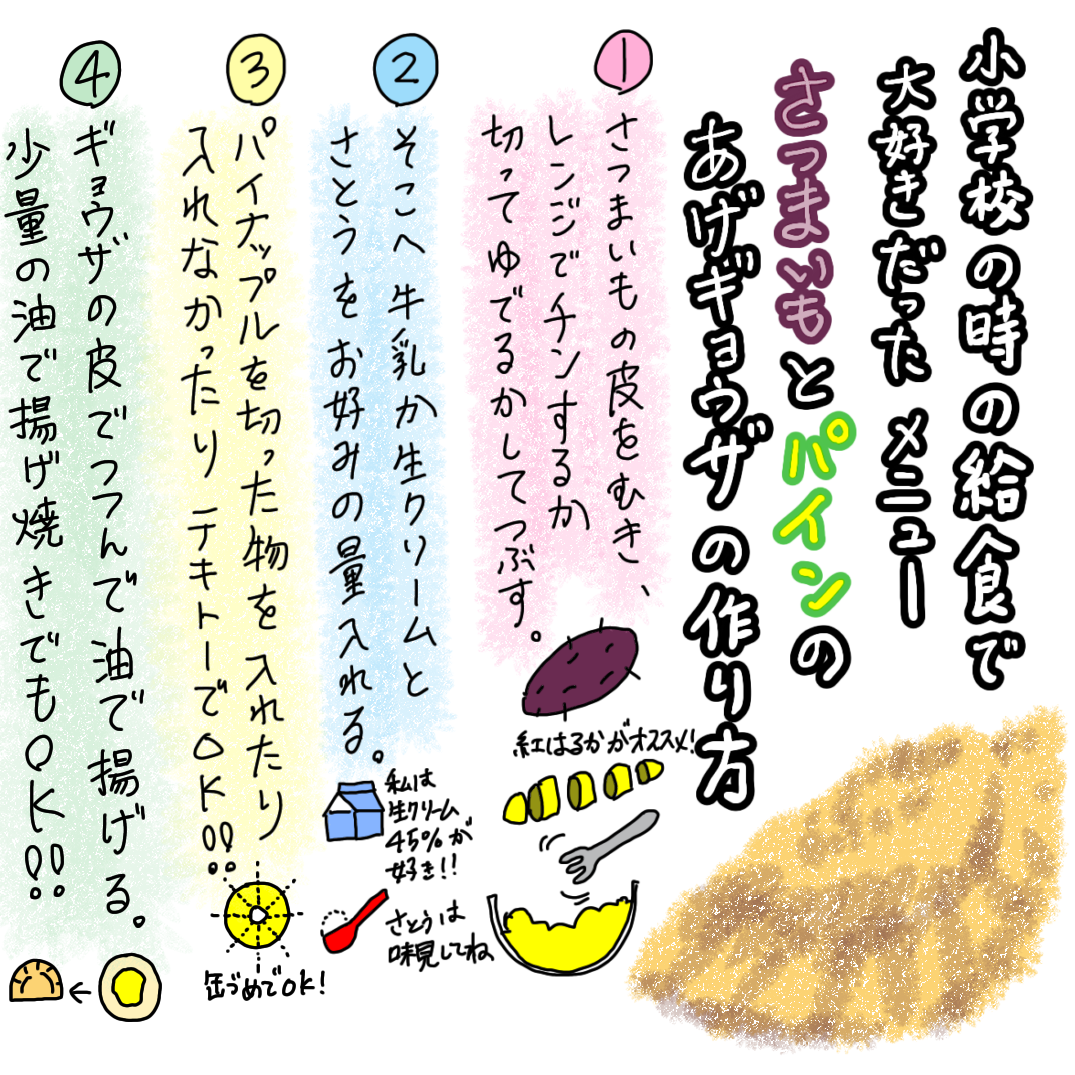 小学校の時の給食で
大好きだったメニュー
さつまいもとパインの
あげギョウザの作り方
1
さつまいもの皮をむき、
レンジでチンするか
切ってゆでるかしてつぶす。
紅はるかがオススメ!
2
そこへ牛乳か生クリームと
さとうをお好みの量入れる。
私は
生クリーム
45%が
好き!!
さとうは
味見してね
3
パイナップルを切った物を入れたり
入れなかったりテキトーでOK!!
缶づめでOK!
4
ギョウザの皮でつつんで油で揚げる。
少量の油で揚げ焼きでもOK!!